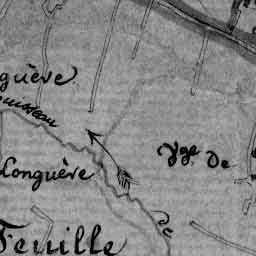 guève
Ruisseau
Longuève
Vge. De
de
Feuille